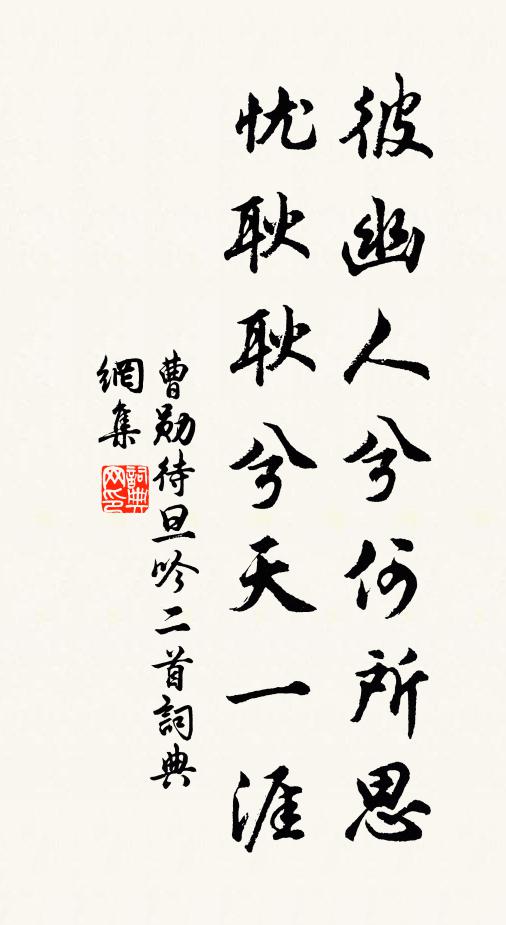 彼幽人兮何所思
忧耿耿兮天一涯
曹勛待旦吟二首詞典
網集
詞典
网印